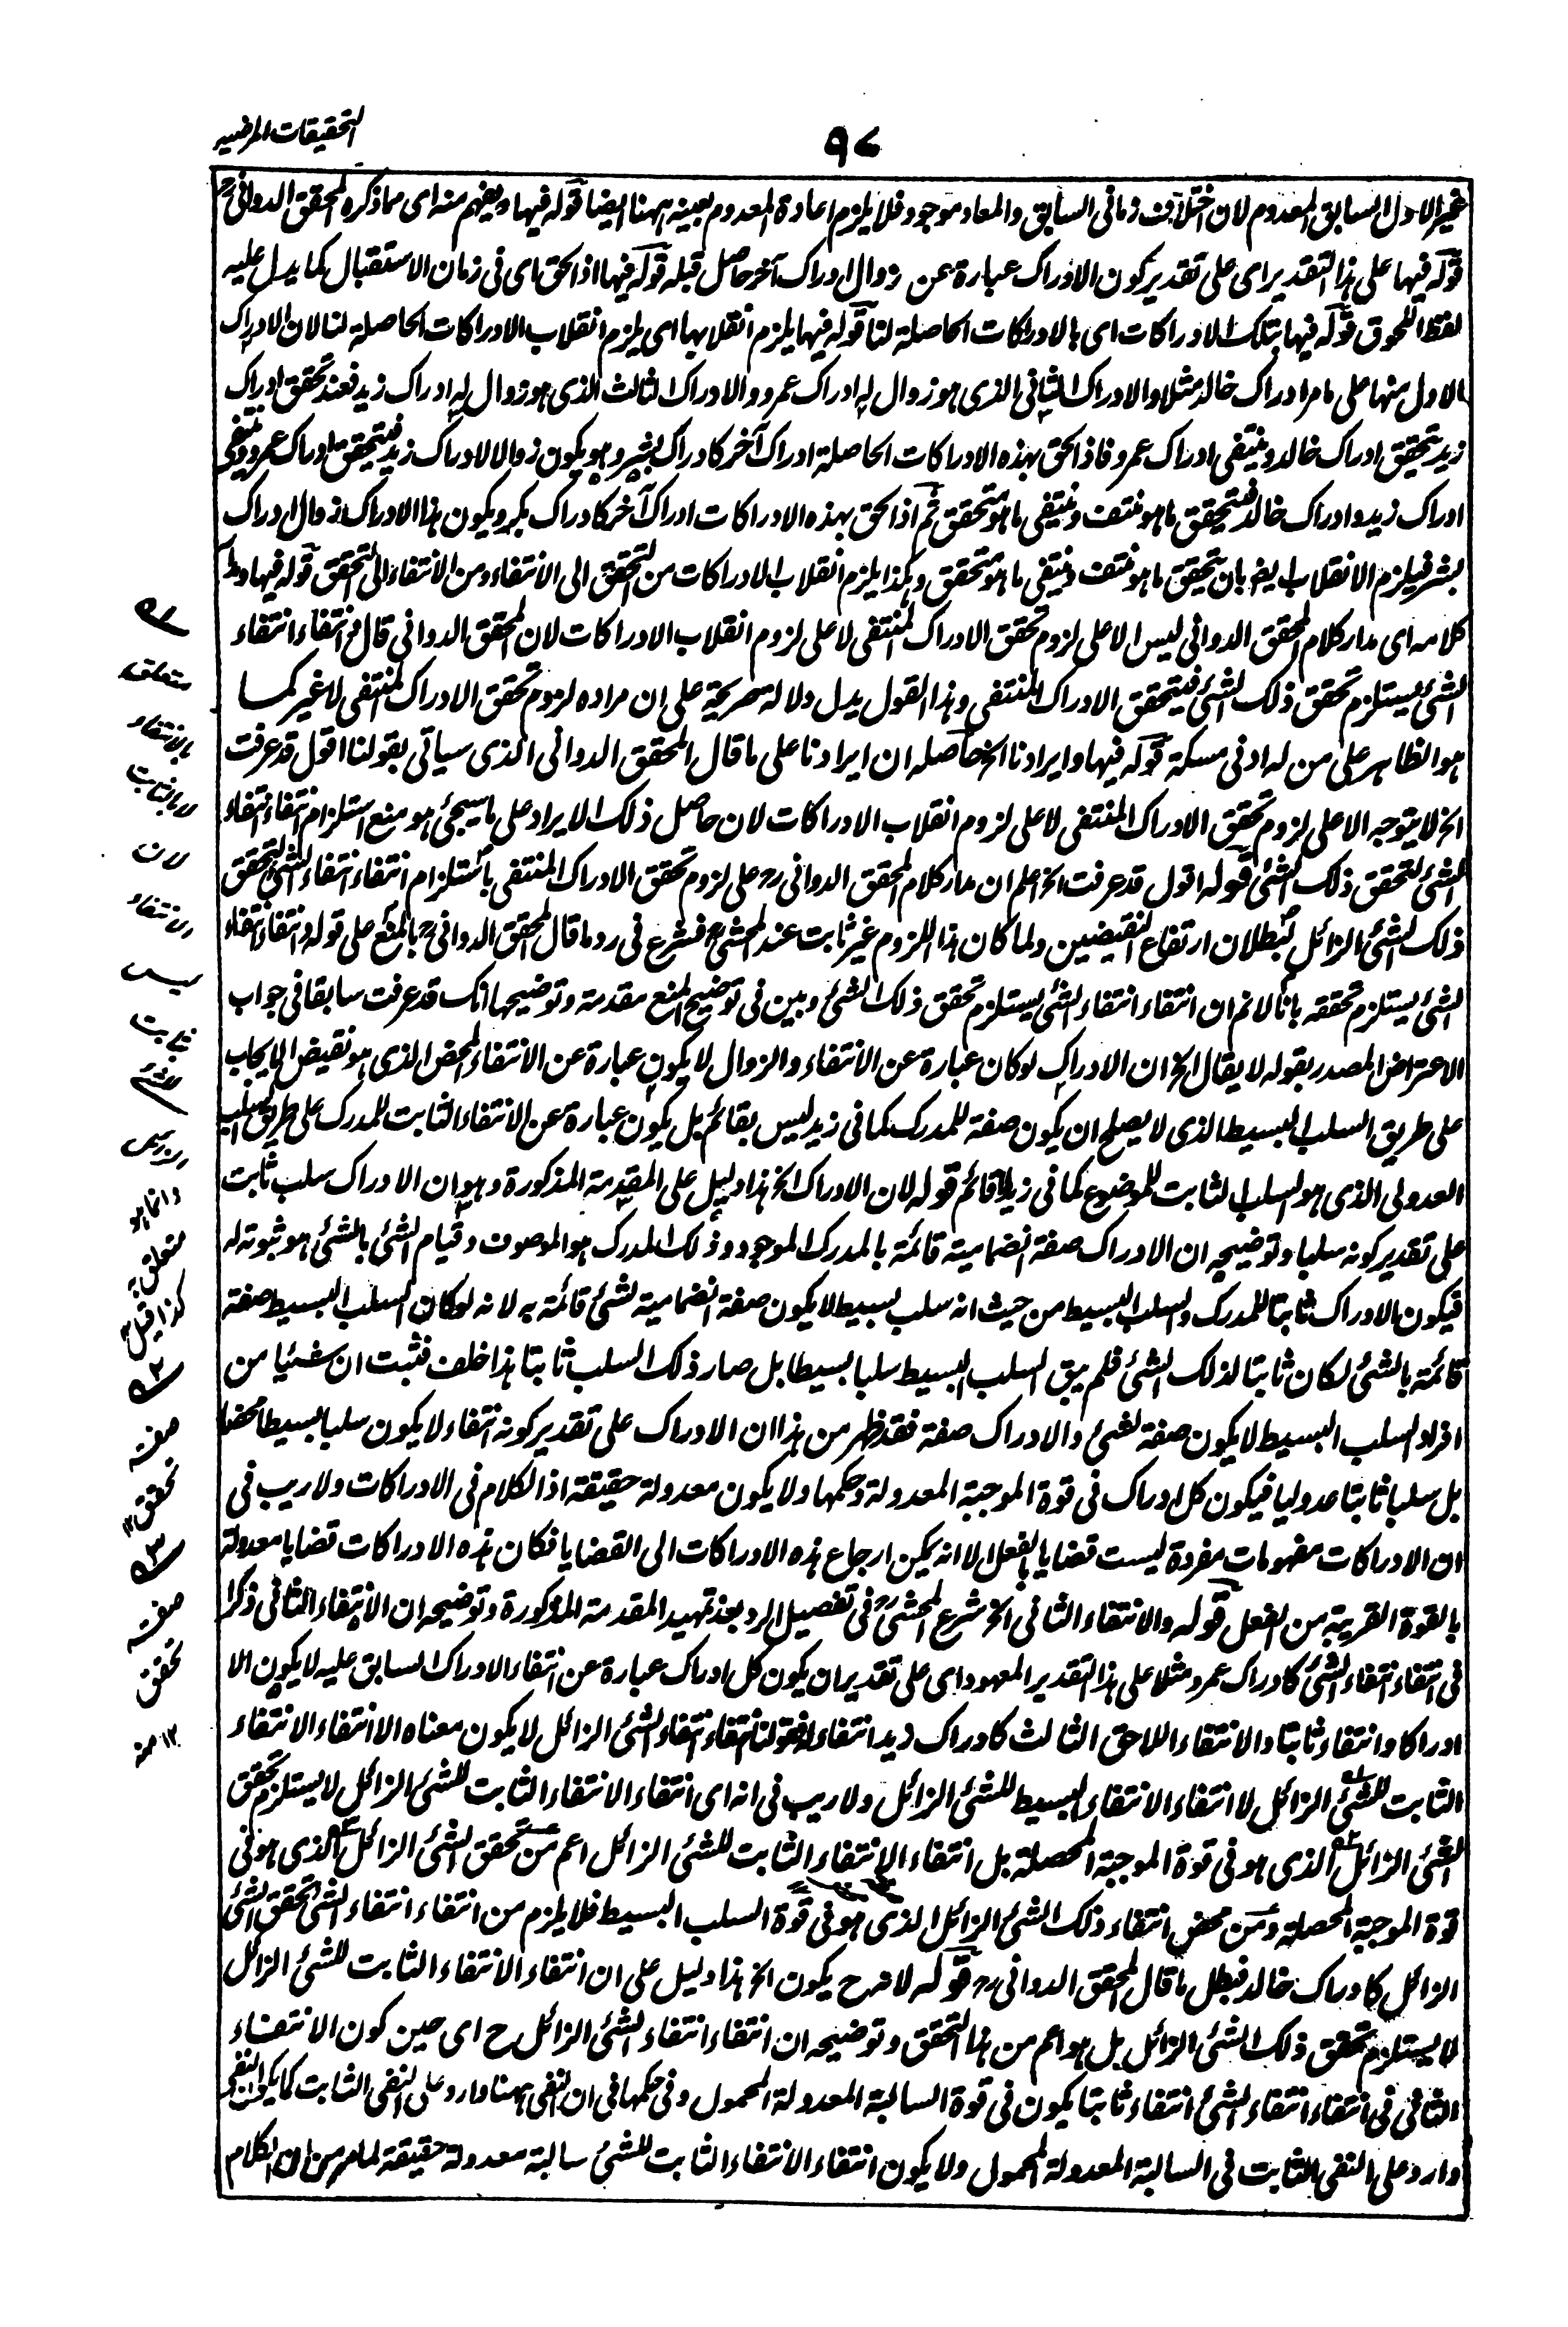 التحقيقات المرضيه
٩٧
غير الاول السابق المعدوم لان اختلاف زمانى السابق والمعاد موجود فلا يلزم اعادة المعدوم بعينه ههنا ايضا قوله فيها ويفهم منه اى مما ذكره المحقق الدوانى رح
قوله فيها على هذا التقدير اى على تقدير كون الادراك عبارة عن زوال ادراك آخر حاصل قبله قوله فيها اذا لحق اى فى زمان الاستقبال كما يدل عليه
لفظ اللحوق قوله فيها بتلك الادراكات اى بالادراكات الحاصلة لنا قوله فيها يلزم انقلابها اى يلزم انقلاب الادراكات الحاصلة لنا لان الادراك
الاول منها على ما مر ادراك خالد مثلا والادراك الثانى الذى هو زوال له ادراك عمرو والادراك الثالث الذى هو زوال له ادراك زيد فعند تحقق ادراك
زيد تحقق ادراك خالد وينتفى ادراك عمرو فاذا لحق بهذه الادراكات الحاصلة ادراك آخر كادراك بشر وهو يكون زوالا لادراك زيد فيتحقق ادراك عمرو وينتفى
ادراك زيد وادراك خالد فيتحقق ما هو منتف وينتفى ما هو متحقق ثم اذا لحق بهذه الادراكات ادراك آخر كادراك بكر ويكون هذا الادراك زوال ادراك
بشر فيلزم الانقلاب ايضا بان تحقق ما هو منتف وينتفى ما هو متحقق وهكذا يلزم انقلاب الادراكات من التحقق الى الانتفاء ومن الانتفاء الى التحقق قوله فيها ومدار
كلامه اى مدار كلام المحقق الدوانى ليس الا على لزوم تحقق الادراك المنتفى لا على لزوم انقلاب الادراكات لان المحقق الدوانى قال فانتفاء انتفاء
الشئ يستلزم تحقق ذلك الشئ فيتحقق الادراك المنتفى وهذا القول يدل دلالة صريحة على ان مراده لزوم تحقق الادراك المنتفى لا غير كما
هو الظاهر على من له ادنى مسكة قوله فيها وايرادنا الخ حاصله ان ايرادنا على ما قال المحقق الدوانى الذى سياتى بقولنا اقول قد عرفت
الخ لا يتوجه الا على لزوم تحقق الادراك المنتفى لا على لزوم انقلاب الادراكات لان حاصل ذلك الايراد على ما سيجئ هو منع استلزام انتفاء انتفاء
الشئ لتحقق ذلك الشئ قوله اقول قد عرفت الخ اعلم ان مدار كلام المحقق الدوانى رح على لزوم تحقق الادراك المنتفى باستلزام انتفاء انتفاء الشئ لتحقق
ذلك الشئ الزائل لبطلان ارتفاع النقيضين ولما كان هذا اللزوم غير ثابت عند المحشى رح فشرع فى رد ما قال المحقق الدوانى رح بالمنع على قوله وانتفاء انتفاء
الشئ يستلزم تحققه بانا لا نم ان انتفاء انتفاء الشئ يستلزم تحقق ذلك الشئ وبين فى توضيح المنع مقدمة وتوضيحها انك قد عرفت سابقا فى جواب
الاعتراض المصدر بقوله لا يقال الخ ان الادراك لو كان عبارة عن الانتفاء والزوال لا يكون عبارة عن الانتفاء المحض الذى هو نقيض الايجاب
على طريق السلب البسيط الذى لا يصلح ان يكون صفة للمدرك كما فى زيد ليس بقائم بل يكون عبارة عن الانتفاء الثابت للمدرك على طريق السلب
العدولى الذى هو السلب الثابت للموضوع كما فى زيد لا قائم قوله لان الادراك الخ هذا دليل على المقدمة المذكورة وهو ان الادراك سلب ثابت
على تقدير كونه سلبا وتوضيحه ان الادراك صفة انضمامية قائمة بالمدرك الموجود وذلك المدرك هو الموصوف وقيام الشئ بالشئ هو ثبوته له
فيكون الادراك ثابتا للمدرك والسلب البسيط من حيث انه سلب بسيط لا يكون صفة انضمامية لشئ قائمة به لانه لو كان السلب البسيط صفة
قائمة بالشئ لكان ثابتا لذلك الشئ فلم يبق السلب البسيط سلبا بسيطا بل صار ذلك السلب ثابتا هذا خلف فثبت ان شيئا من
افراد السلب البسيط لا يكون صفة لشئ والادراك صفة فقد ظهر من هذا ان الادراك على تقدير كونه انتفاء لا يكون سلبا بسيطا محضا
بل سلبا ثابتا عدوليا فيكون كل ادراك فى قوة الموجبة المعدولة وحكمها ولا يكون معدولة حقيقة اذ الكلام فى الادراكات ولا ريب فى
ان الادراكات مفهومات مفردة ليست قضايا بالفعل الا انه يمكن ارجاع هذه الادراكات الى القضايا فكان هذه الادراكات قضايا معدولة
بالقوة القريبة من الفعل قوله والانتفاء الثانى الخ شرع المحشى رح فى تفصيل الرد بعد تمهيد المقدمة المذكورة وتوضيحه ان الانتفاء الثانى ذكرا
فى انتفاء انتفاء الشئ كادراك عمرو مثلا على هذا التقدير المعهود اى على تقدير ان يكون كل ادراك عبارة عن انتفاء الادراك السابق عليه لا يكون الا
ادراكا وانتفاء ثابتا والانتفاء اللاحق الثالث كادراك زيد انتفاء له فقولنا انتفاء انتفاء الشئ الزائل لا يكون معناه الا انتفاء الانتفاء
الثابت للشئ الزائل لا انتفاء الانتفاء البسيط للشئ الزائل ولا ريب فى انه اى انتفاء الانتفاء الثابت للشئ الزائل لا يستلزم تحقق
الشئ الزائل الذى هو فى قوة الموجبة المحصلة بل انتفاء الانتفاء الثابت للشئ الزائل اعم من تحقق الشئ الزائل الذى هو فى
قوة الموجبة المحصلة ومن محض انتفاء ذلك الشئ الزائل الذى هو فى قوة السلب البسيط فلا يلزم من انتفاء انتفاء الشئ تحقق الشئ
الزائل كادراك خالد فبطل ما قال المحقق الدوانى رح قوله لانه ح يكون الخ هذا دليل على ان انتفاء الانتفاء الثابت للشئ الزائل
لا يستلزم تحقق ذلك الشئ الزائل بل هو اعم من هذا التحقق وتوضيحه ان انتفاء انتفاء الشئ الزائل ح اى حين كون الانتفاء
الثانى فى انتفاء انتفاء الشئ انتفاء ثابتا يكون فى قوة السالبة المعدولة المحمول وفى حكمها فى ان النفى ههنا وارد على النفى الثابت كما يكون النفى
وارد على النفى الثابت فى السالبة المعدولة المحمول ولا يكون انتفاء الانتفاء الثابت للشئ سالبة معدولة حقيقة لما مر من ان الكلام
له ١
متعلق
بالانتفاء
لا بالثابت
لان
الانتفاء
ليس
بثابت
للشئ
وانما هو
متعلق به
كذا قيل
له ٢
صفة
تحقق
له ٣
صفة
تحقق
١٢ منه